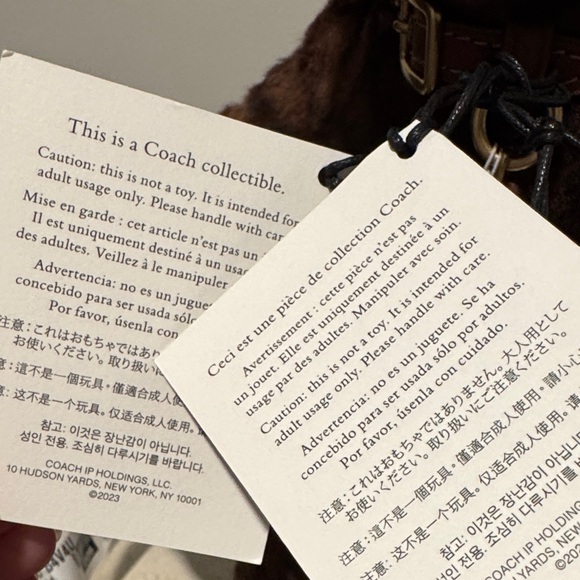 This is a Coach collectible.
Caution: this is not a toy. It is intended for
adult usage only. Please handle with
Mise en garde : cet article n'est pas un
Il est uniquement destiné à un
des adultes. Veillez à le manipuler
Advertencia: no es un
concebido para ser usada
Por favor, úsenla con
注意：これはおもちゃでは
お使いください。取り扱い
意：這不是一個玩具。僅適合成人使
意：这不是一个玩具。仅适合成人使用。
참고: 이것은 장난감이 아닙니다.
성인 전용. 조심히 다루시기를 바랍니다.
COACH IP HOLDINGS, LLC.
10 HUDSON YARDS, NEW YORK, NY 10001
©2023
Ceci est une pièce de collection Coach.
Avertissement : cette pièce n'est pas
un jouet. Elle est uniquement destinée à un
usage par des adultes. Manipuler avec soin.
Caution: this is not a toy. It is intended for
adult usage only. Please handle with care.
Advertencia: no es un juguete. Se ha
concebido para ser usada sólo por adultos.
Por favor, úsenla con cuidado.
注意：これはおもちゃではありません。大人用として
お使いください。取り扱いにご注意ください。
注意：這不是一個玩具。僅適合成人使用。請小心
注意：这不是一个玩具。仅适合成人使用。请
참고: 이것은 장난감이 아닙니다.
성인 전용. 조심히 다루시기를
COACH IP HOLDINGS
10 HUDSON YARDS, NEW